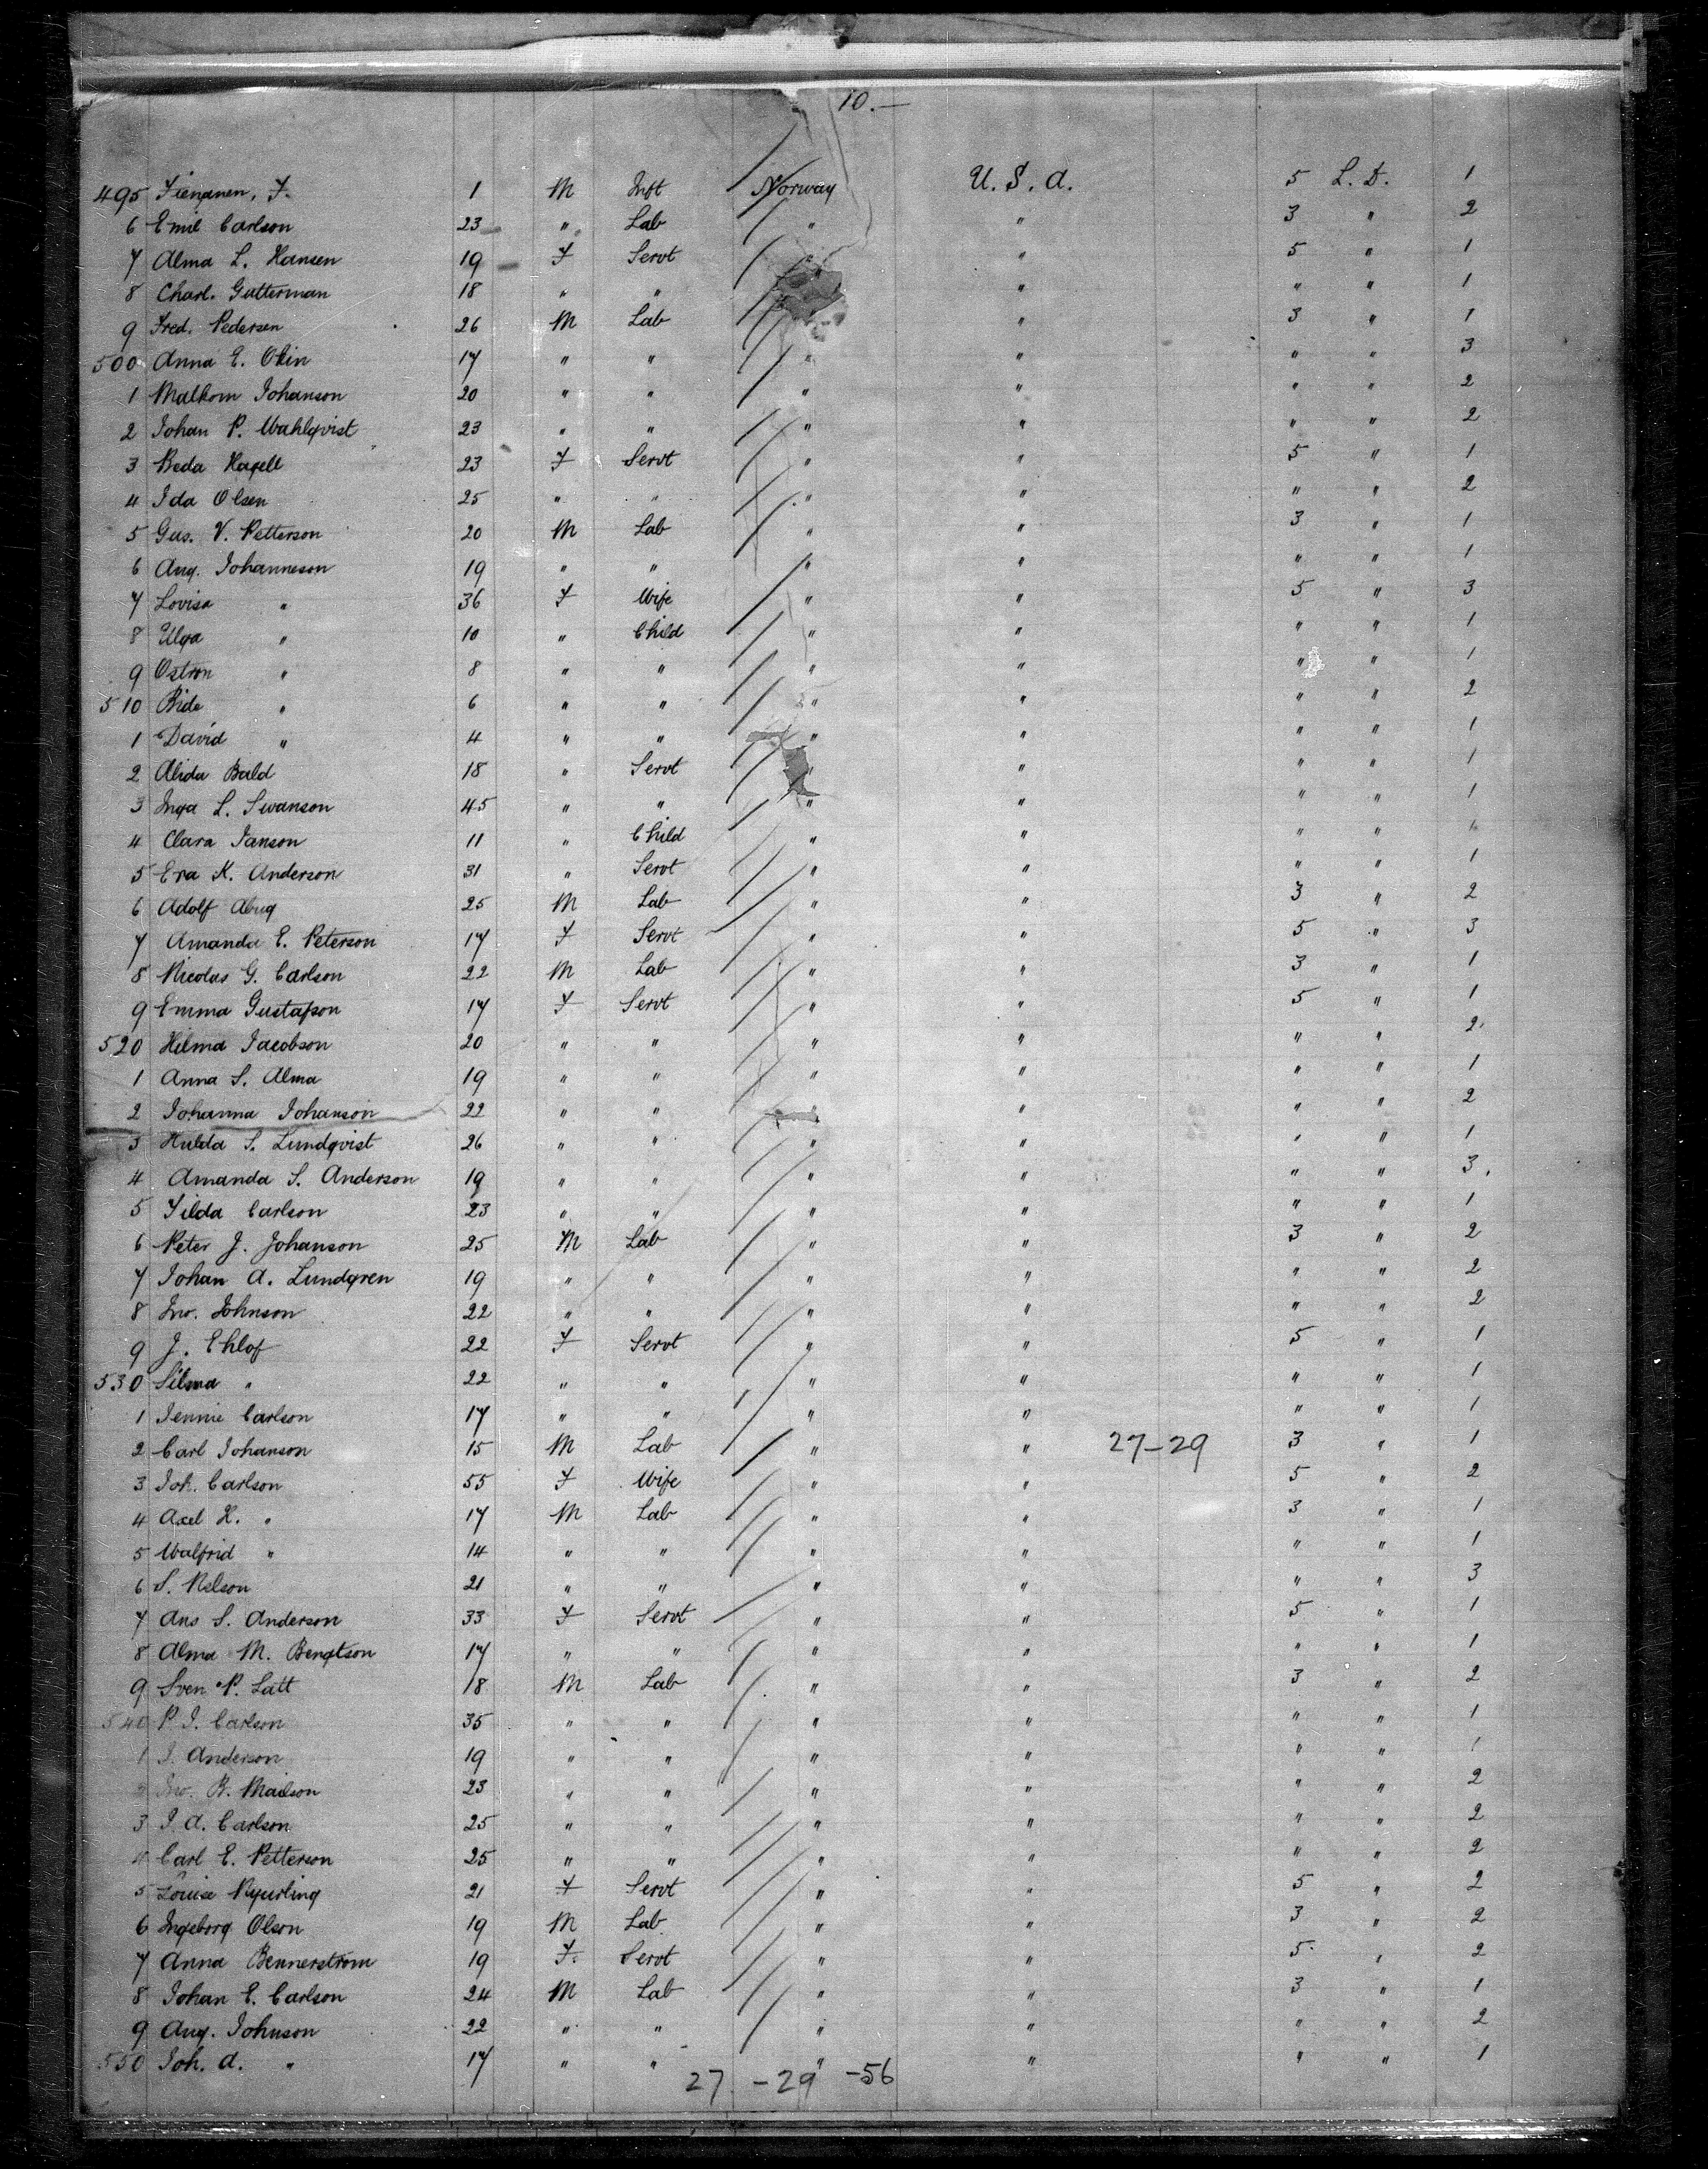 10.—
495 F. 1 M Inft Norway U.S.A. 5 L.D. 1
6 Emil Carlson 23 " Lab " " 3 " 2
7 Alma L. Hansen 19 F Servt " " 5 " 1
8 Charl. Gutterman 18 " " " " " 1
9 Fred. Pedersen 26 M Lab " 3 " 1
500 Anna E. 17 " " " " " " 3
1 Malkom Johanson 20 " " " " " " 2
2 Johan P. Wahlqvist 23 " " " " " " 2
3 Beda 23 F Servt " " 5 " 1
4 Ida Olsen 25 " " " " " " 2
5 Gus. V. Petterson 20 M Lab " " 3 " 1
6 Aug. Johanneson 19 " " " " " " 1
7 Lovisa " 36 F Wife " " 5 " 3
8 Ulga " 10 " Child " " " " 1
9 Ostron " 8 " " " " " " 1
510 Bida " 6 " " " " " " 2
1 David " 4 " " " " " " 1
2 Alida Bald 18 " Servt " " " " 1
3 Inga L. Swanson 45 " " " " " " 1
4 Clara Janson 11 " Child " " " " 1
5 Eva K. Anderson 31 " Servt " " " " 1
6 Adolf 25 M Lab " " 3 " 2
7 Amanda E. Peterson 17 F Servt " " 5 " 3
8 Nicolas G. Carlson 22 M Lab " " 3 " 1
9 Emma Gustafson 17 F Servt " " 5 " 1
520 Hilma Jacobson 20 " " " " " " 2
1 Anna S. Alma 19 " " " " " " 1
2 Johanna Johanson 22 " " " " " " 2
3 Hulda S. Lundqvist 26 " " " " " " 1
4 Amanda S. Anderson 19 " " " " " " 3
5 Tilda Carlson 23 " " " " " " 1
6 Peter J. Johanson 25 M Lab " " 3 " 2
7 Johan A. Lundgren 19 " " " " " " 2
8 Jno. Johnson 22 " " " " " " 2
9 J. Ehlof 22 F Servt " " 5 " 1
530 Silma " 22 " " " " " " 1
1 Jennie Carlson 17 " " " " " " 1
2 Carl Johanson 15 M Lab " " 27-29 3 " 1
3 Joh. Carlson 55 F Wife " " 5 " 2
4 Axel H. " 17 M Lab " " 3 " 1
5 Walfrid " 14 " " " " " " 1
6 S. Nelson 21 " " " " " " 3
7 Ans S. Anderson 33 F Servt " " 5 " 1
8 Alma M. Bengtson 17 " " " " " " 1
9 Sven P. Latt 18 M Lab " " 3 " 2
540 P. J. Carlson 35 " " " " " " 1
1 J. Anderson 19 " " " " " " 1
2 Jno. B. Mailson 23 " " " " " " 2
3 J. A. Carlson 25 " " " " " " 2
4 Carl E. Petterson 25 " " " " " " 2
5 Louise 21 F Servt " " 5 " 2
6 Ingeborg Olson 19 M Lab " " 3 " 2
7 Anna Bennerstrom 19 F. Servt " " 5 " 2
8 Johan E. Carlson 24 M Lab " " 3 " 1
9 Aug. Johnson 22 " " " " " " 2
550 Joh. A. " 17 " " " " " " 1
27 - 29 - 56